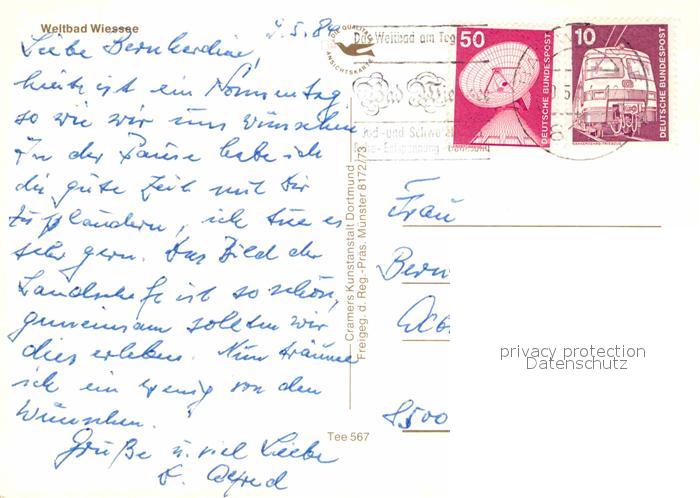 Weltbad Wiessee
9.5.84
Liebe Bernhardine,
heute ist ein Sonnentag
so wie wir uns wünschen
In der Pause habe ich
die gute Zeit mit Dir
zu plaudern, ich tue es
sehr gern. Das Bild der
Landschaft ist so schön,
gemeinsam sollten wir
dies erleben. Nun träume
ich ein wenig von den
Wünschen.
Grüße u. viel Liebe
D. Alfred
DIE QUALITÄTS
ANSICHTSKARTE
Das Weltbad am Teg
Bad Wie
Jod- und Schwe
Entspannung
50
DEUTSCHE BUNDESPOST
10
DEUTSCHE BUNDESPOST
Cramers Kunstanstalt Dortmund
Freigeg. d. Reg.-Präs. Münster 8172/73
Tee 567
Frau
Bern
8500
privacy protection
Datenschutz